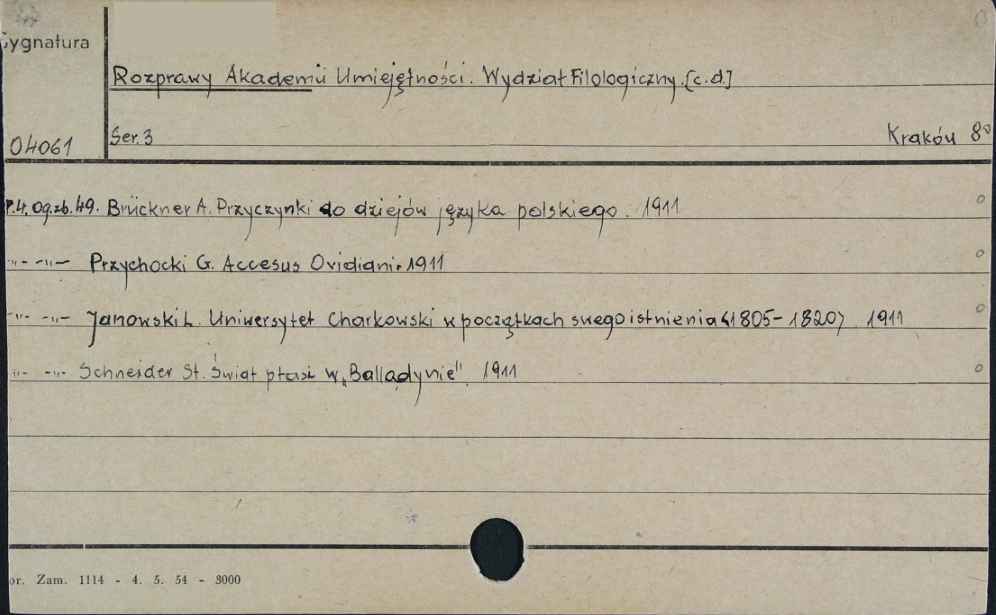 Sygnatura
Rozprawy Akademii Umiejętności. Wydział Filologiczny. [c.d.]
04061
Ser. 3
Kraków 8°
T.4. og.zb. 49. Brückner A. Przyczynki do dziejów języka polskiego. 1911
-"- -"- Przychocki G. Accesus Ovidiani. 1911
-"- -"- Janowski L. Uniwersytet Charkowski w początkach swego istnienia (1805-1820). 1911
-"- -"- Schneider St. Świat ptasi w „Balladynie". 1911
or. Zam. 1114 - 4. 5. 54 - 3000